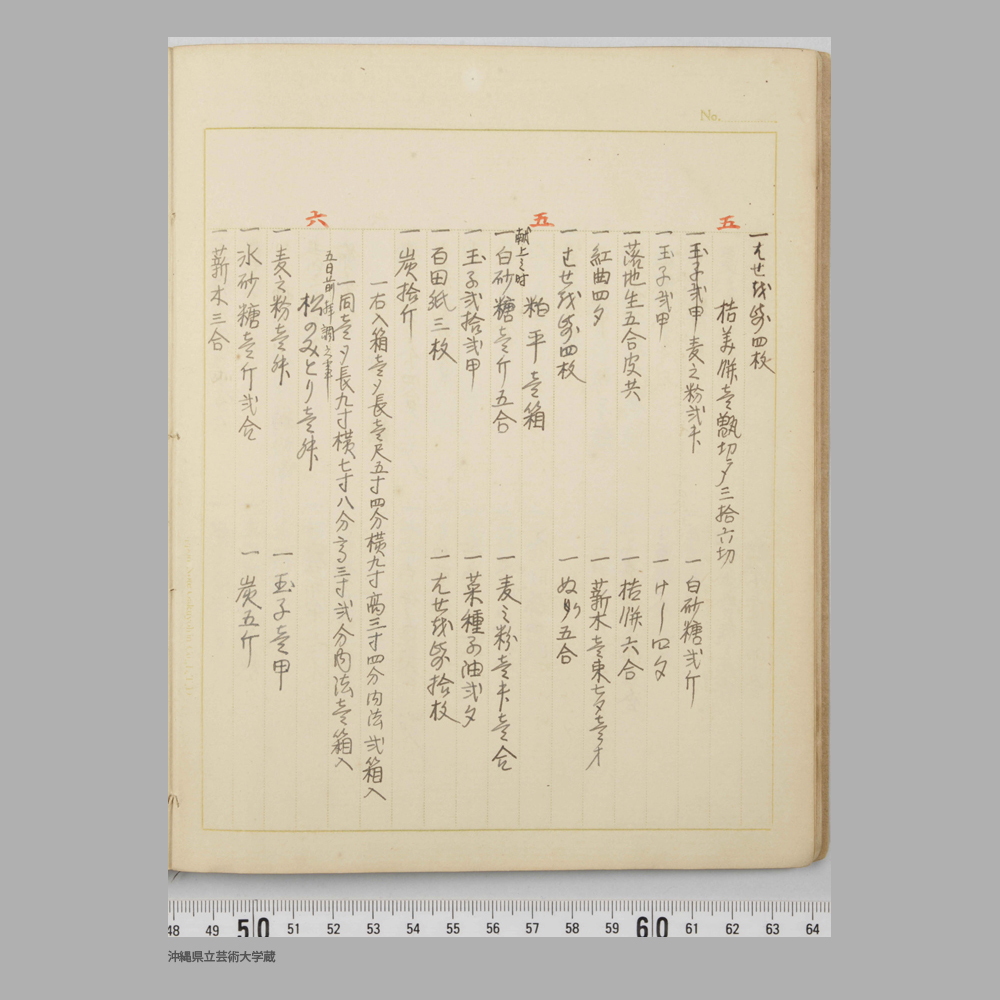 No.
一はせを紙四枚
五
桔美餅壱甑切〆三拾六切
一玉子弐甲 麦之粉弐斤 一白砂糖弐斤
一玉子弐甲 一けし四夕
一落地生五合皮共 一桔餅六合
一紅曲四夕 一薪木壱束七夕壱才
一はせを紙四枚 一ぬり五合
五
献上之時
粕平壱箱
一白砂糖壱斤五合 一麦之粉壱斤壱合
一玉子弐拾弐甲 一菜種子油弐夕
一百田紙三枚 一はせを紙拾枚
一炭拾斤
一右入箱壱〆長壱尺五寸四分横九寸高三寸四分内法弐箱入
一同壱〆長九寸横七寸八分高三寸弐分内法壱箱入
六
五日前拝調之事
松のみとり壱舛
一麦之粉壱舛 一玉子壱甲
一氷砂糖壱斤弐合 一炭五斤
一薪木三合
48 49 50 51 52 53 54 55 56 57 58 59 60 61 62 63 64
沖縄県立芸術大学蔵